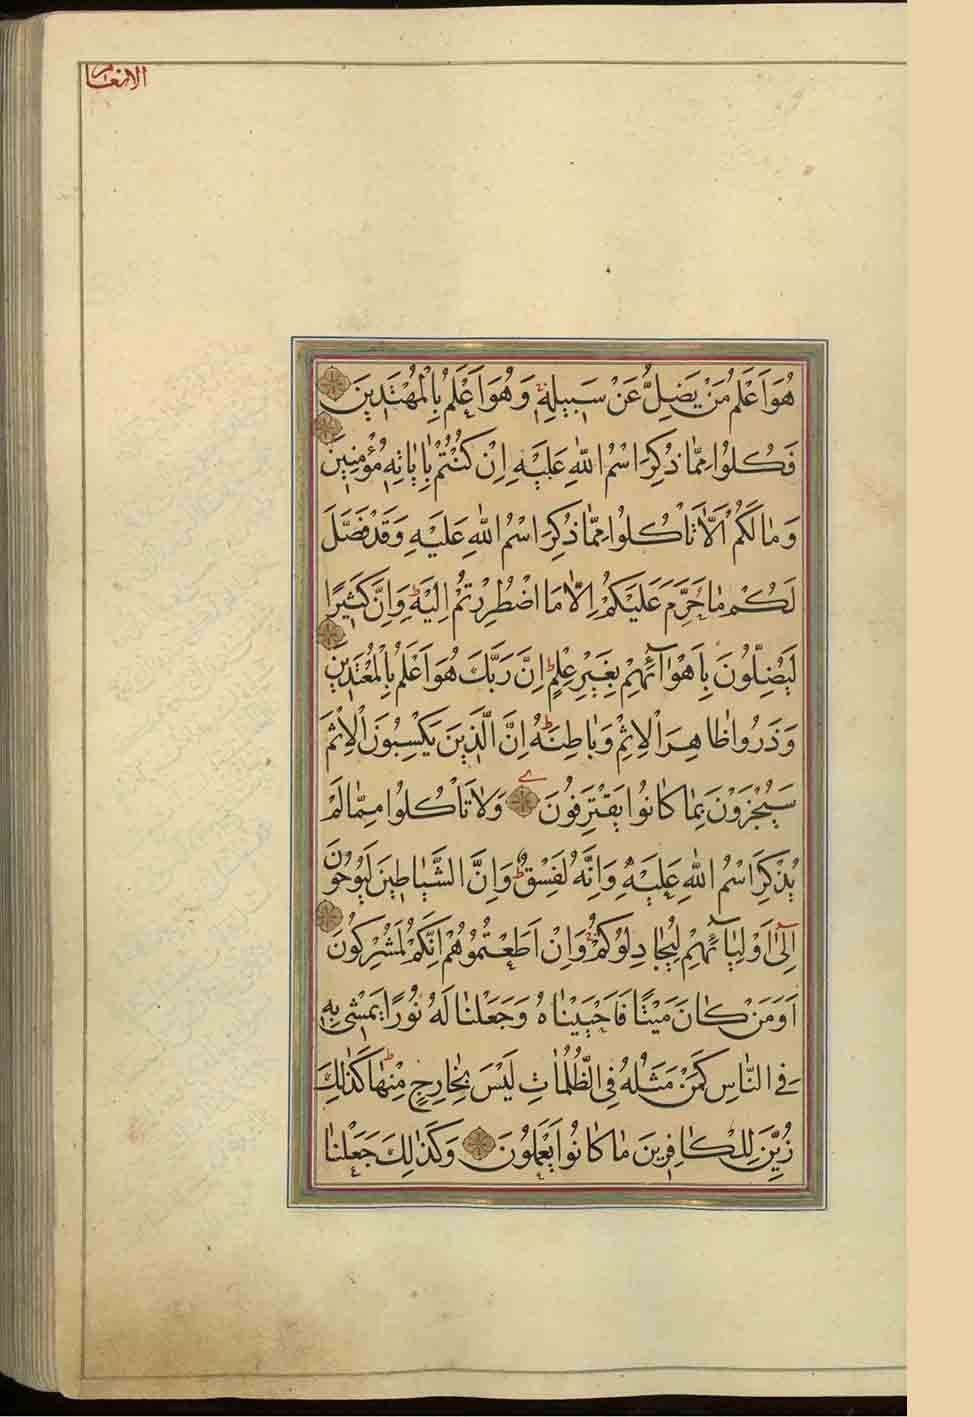 الانعام
هُوَ اَعْلَمُ مَنْ يَضِلُّ عَنْ سَبِيلِهٖ وَهُوَ اَعْلَمُ بِالْمُهْتَدِينَ
فَكُلُوا مِمَّا ذُكِرَ اسْمُ اللّٰهِ عَلَيْهِ اِنْ كُنْتُمْ بِاٰيَاتِهٖ مُؤْمِنِينَ
وَمَا لَكُمْ اَلَّا تَأْكُلُوا مِمَّا ذُكِرَ اسْمُ اللّٰهِ عَلَيْهِ وَقَدْ فَصَّلَ
لَكُمْ مَا حَرَّمَ عَلَيْكُمْ اِلَّا مَا اضْطُرِرْتُمْ اِلَيْهِ ط وَاِنَّ كَثِيرًا
لَيُضِلُّونَ بِاَهْوَآئِهِمْ بِغَيْرِ عِلْمٍ ط اِنَّ رَبَّكَ هُوَ اَعْلَمُ بِالْمُعْتَدِينَ
وَذَرُوا ظَاهِرَ الْاِثْمِ وَبَاطِنَهُ ط اِنَّ الَّذِينَ يَكْسِبُونَ الْاِثْمَ
سَيُجْزَوْنَ بِمَا كَانُوا يَقْتَرِفُونَ وَلَا تَأْكُلُوا مِمَّا لَمْ
يُذْكَرِ اسْمُ اللّٰهِ عَلَيْهِ وَاِنَّهُ لَفِسْقٌ ط وَاِنَّ الشَّيَاطِينَ لَيُوحُونَ
اِلٰٓى اَوْلِيَآئِهِمْ لِيُجَادِلُوكُمْ وَاِنْ اَطَعْتُمُوهُمْ اِنَّكُمْ لَمُشْرِكُونَ
اَوَمَنْ كَانَ مَيْتًا فَاَحْيَيْنَاهُ وَجَعَلْنَا لَهُ نُورًا يَمْشِي بِهٖ
فِي النَّاسِ كَمَنْ مَثَلُهُ فِي الظُّلُمَاتِ لَيْسَ بِخَارِجٍ مِنْهَا ط كَذٰلِكَ
زُيِّنَ لِلْكَافِرِينَ مَا كَانُوا يَعْمَلُونَ وَكَذٰلِكَ جَعَلْنَا